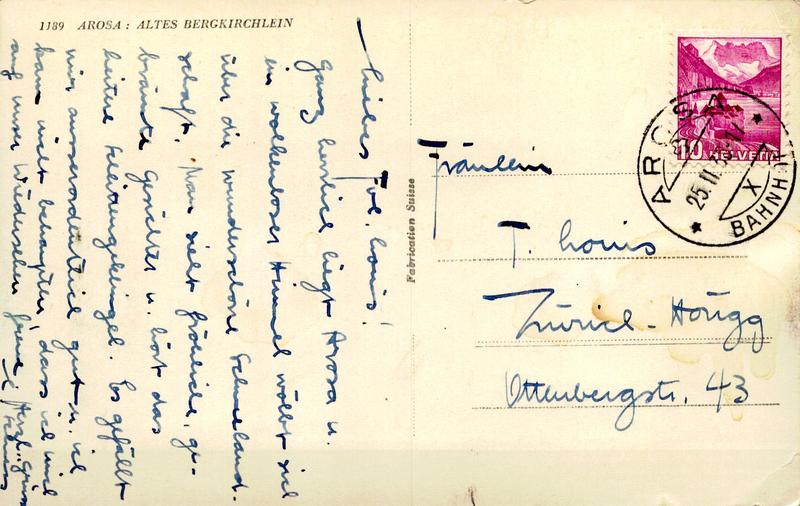 1189 AROSA: ALTES BERGKIRCHLEIN
Liebes Frl. Louis!
Ganz herrlich liegt Arosa u.
ein wolkenloser Himmel wölbt sich
über die wunderschöne Schneeland-
schaft. Man sieht fröhliche, ge-
bräunte Gesichter u. hört das
heitere Schlittengeklingel. Es gefällt
mir ausserordentlich gut u. ich
kann nicht behaupten, dass ich mich
auf unser Wiedersehen freue!
Herzl. Grüsse
Fabrication Suisse
Fräulein
T. Louis
Zürich-Höngg
Ottenbergstr. 43
10 HELVETIA
AROSA
25.II.
X
BAHNH